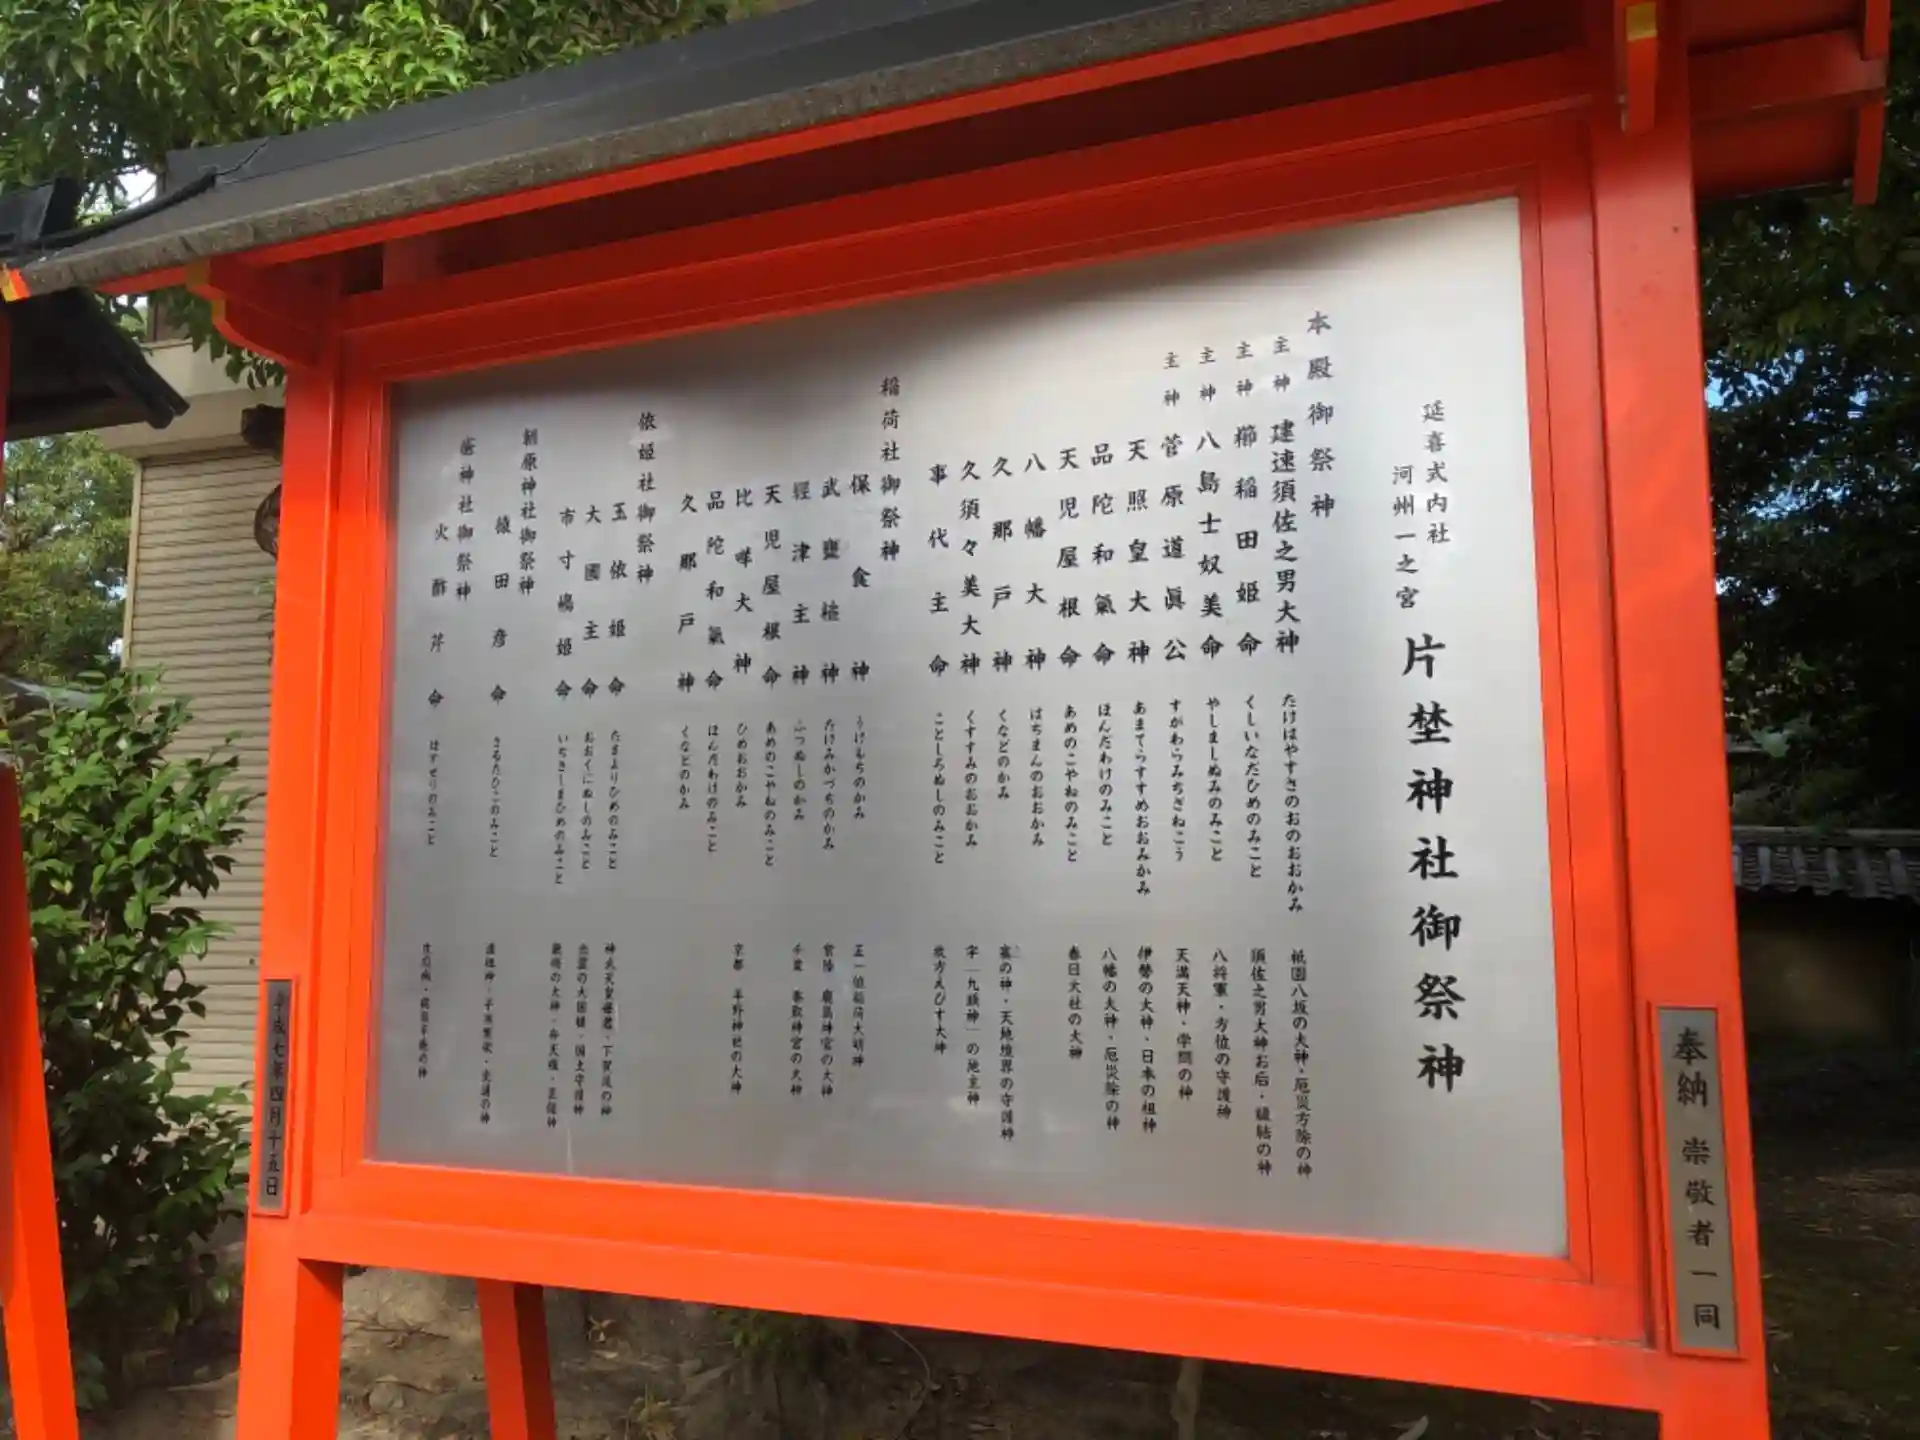 延喜式内社
河州一之宮
片埜神社御祭神
本殿御祭神
主神 建速須佐之男大神 たけはやすさのおのおおかみ 祇園八坂の大神・厄災方除の神
主神 櫛稲田姫命 くしいなだひめのみこと 須佐之男大神お后・縁結の神
主神 八島士奴美命 やしましぬみのみこと 八将軍・方位の守護神
主神 菅原道眞公 すがわらみちざねこう 天満天神・学問の神
天照皇大神 あまてらすすめおおみかみ 伊勢の大神・日本の祖神
品陀和氣命 ほんだわけのみこと 八幡の大神・厄災除の神
天児屋根命 あめのこやねのみこと 春日大社の大神
八幡大神 はちまんのおおかみ
久那戸神 くなどのかみ 塞の神・天地境界の守護神
久須々美大神 くすすみのおおかみ 字「九頭神」の地主神
事代主命 ことしろぬしのみこと 枚方えびす大神
稲荷社御祭神
保食神 うけもちのかみ 正一位稲荷大明神
武甕槌神 たけみかづちのかみ 常陸 鹿島神宮の大神
經津主神 ふつぬしのかみ 千葉 香取神宮の大神
天児屋根命 あめのこやねのみこと
比咩大神 ひめおおかみ 京都 平野神社の大神
品陀和氣命 ほんだわけのみこと
久那戸神 くなどのかみ
依姫社御祭神
玉依姫命 たまよりひめのみこと 神武天皇母君・下賀茂の神
大國主命 おおくにぬしのみこと 出雲の大国様・国土守護神
市寸嶋姫命 いちきしまひめのみこと 厳島の大神・弁天様・芸能神
原神社御祭神
猿田彦命 さるたひこのみこと 道祖神・子孫繁栄・交通の神
神社御祭神
火酢芹命 ほすせりのみこと
奉納 崇敬者一同
平成七年四月十五日